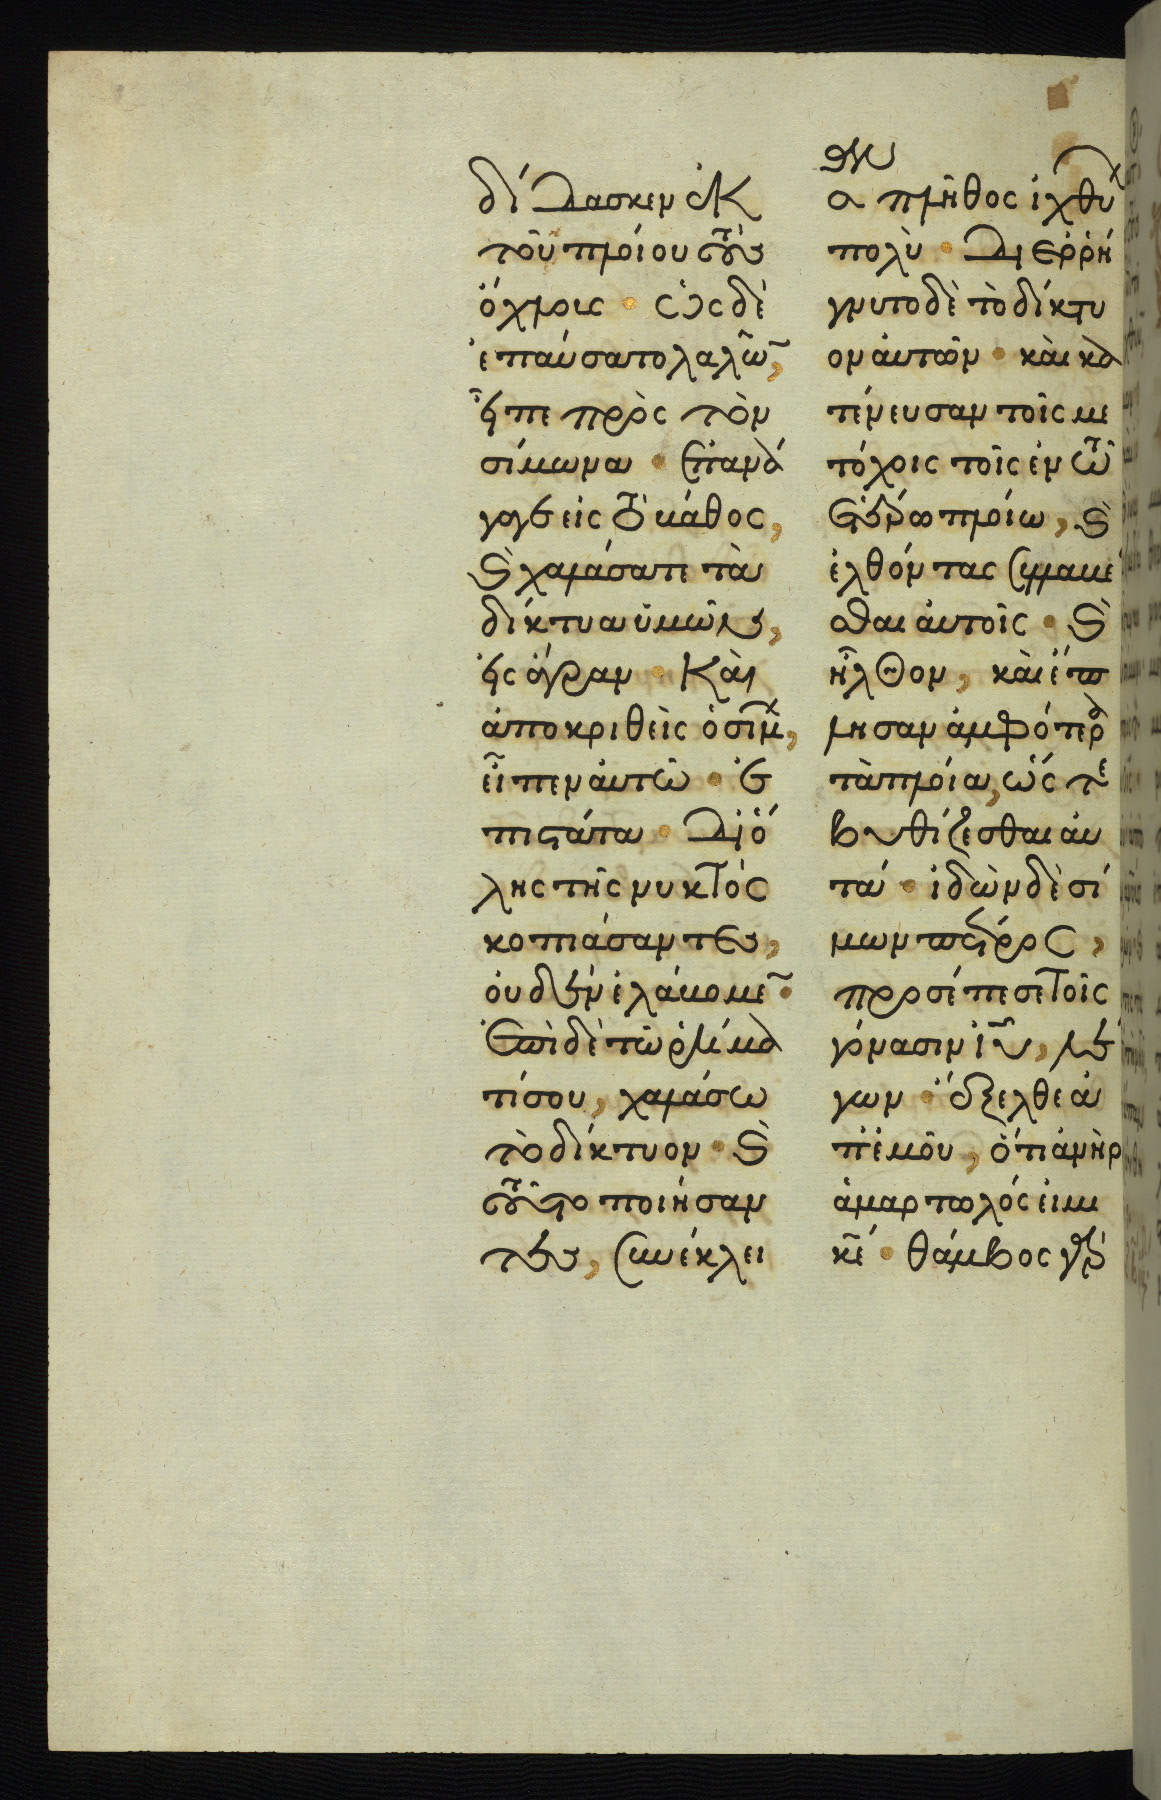 δίδασκεν ἐκ
τοῦ πλοίου τοὺς
ὄχλους · ὡς δὲ
ἐπαύσατο λαλῶν,
εἶπε πρὸς τὸν
σίμωνα · ἐπανά
γαγε εἰς τὸ βάθος,
καὶ χαλάσατε τὰ
δίκτυα ὑμῶν,
εἰς ἄγραν · Καὶ
ἀποκριθεὶς ὁ σίμων,
εἶπεν αὐτῶ · ἐ
πιστάτα · δι ὅ
λης τῆς νυκτὸς
κοπιάσαντες,
οὐδὲν ἐλάβομεν ·
ἐπὶ δὲ τῶ ῥήμα
τί σου, χαλάσω
τὸ δίκτυον · καὶ
τοῦτο ποιήσαν
τες, συνέκλει
σαν πλῆθος ἰχθύων
πολὺ · διερρή
γνυτο δὲ τὸ δίκτυ
ον αὐτῶν · καὶ κα
τένευσαν τοῖς με
τόχοις τοῖς ἐν τῶ
ἑτέρω πλοίω, καὶ
ἐλθόντας συλλαβέ
σθαι αὐτοῖς · καὶ
ἦλθον, καὶ ἔπ
λησαν ἀμφότερα
τὰ πλοῖα, ὥς τε
βυθίζεσθαι αὐ
τά · ἰδὼν δὲ σί
μων πέτρος,
προσέπεσε τοῖς
γόνασιν ἰῦ, λέ
γων · ἔξελθε ἀ
π ἐμοῦ, ὅτι ἀνὴρ
ἁμαρτωλός εἰμι
κ̅ε · θάμβος γὰρ